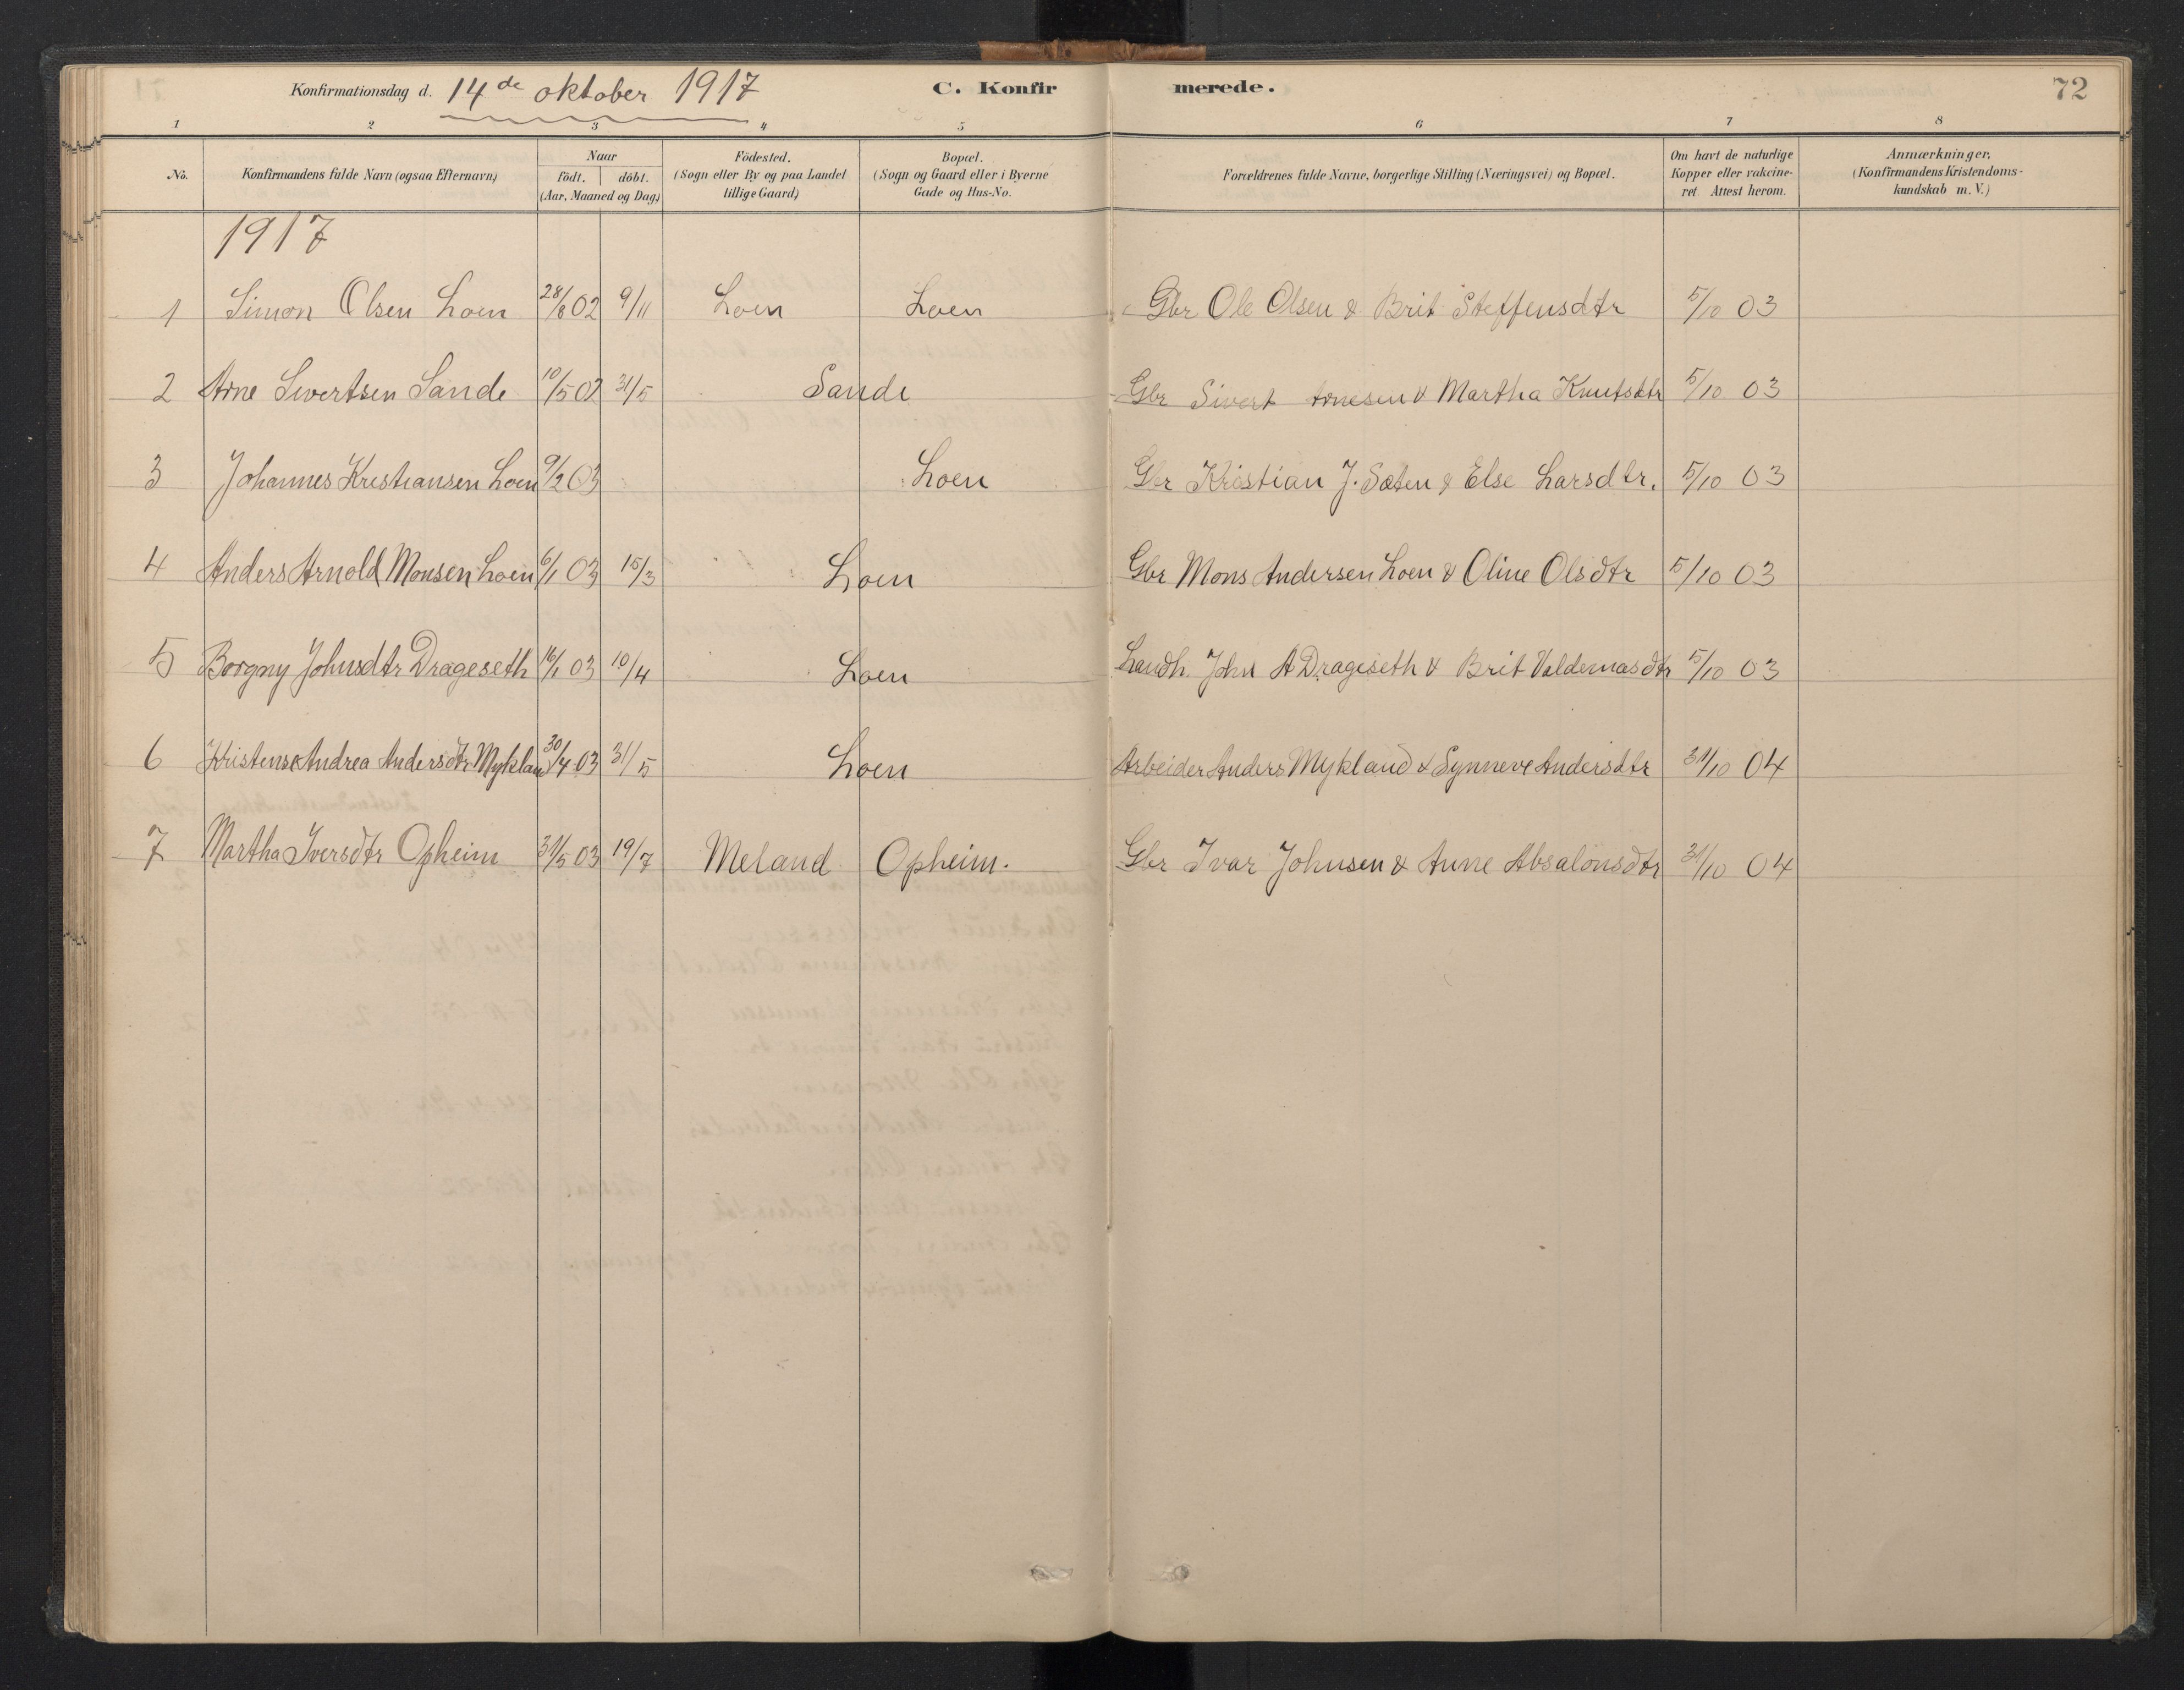 Konfirmationsdag d. 14de oktober 1917 C. Konfir merede. 72
1 2 3 4 5 6 7 8
No. Konfirmandens fulde Navn (ogsaa Efternavn) Naar födt. döbt. (Aar, Maaned og Dag.) Födested. (Sogn eller By og paa Landet tillige Gaard) Bopæl. (Sogn og Gaard eller i Byerne Gade og Hus-No. Forældrenes fulde Navne, borgerlige Stilling (Næringsvei) og Bopæl. Om havt de naturlige Kopper eller vakcineret. Attest herom. Anmærkninger. (Konfirmandens Kristendomskundskab m. V.)
1917
1 Simon Olsen Loen 28/8 02 9/11 Loen Loen Gbr Ole Olsen & Brit Steffensdtr 5/10 03
2 Arne Sivertsen Sande 10/5 02 31/5 Sande Gbr Sivert Arnesen & Martha Knutsdtr 5/10 03
3 Johannes Kristiansen Loen 9/2 03 Loen Gbr Kristian J. Sæten & Else Larsdtr. 5/10 03
4 Anders Arnold Monsen Loen 6/1 03 15/3 Loen Gbr Mons Andersen Loen & Oline Olsdtr 5/10 03
5 Borgny Johnsdtr Drageseth 16/1 03 10/4 Loen Landh. John A Drageseth & Brit Valdemasdtr 5/10 03
6 Kristense Andrea Andersdtr Mykland 30/4 03 31/5 Loen Arbeider Anders Mykland & Synneve Andersdtr 31/10 04
7 Martha Iversdtr Opheim 31/5 03 19/7 Meland Opheim. Gbr Ivar Johnsen & Anne Absalonsdtr 31/10 04